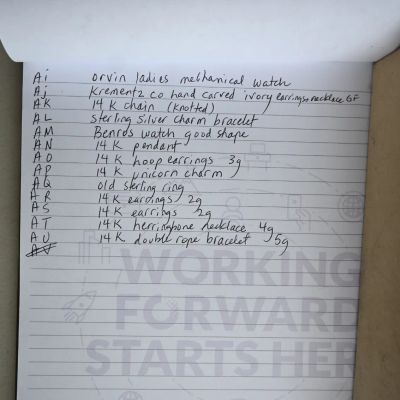 Ai orvin ladies mechanical watch
Aj Krementz co hand carved ivory earrings + necklace GF
AK 14 K chain (knotted)
AL sterling silver charm bracelet
AM Benrus watch good shape
AN 14 K pendant
AO 14 K hoop earrings 3g
AP 14 K unicorn charm
AQ old sterling ring
AR 14 K earrings 2g
AS 14 K earrings 2g
AT 14 K herringbone necklace 4g
AU 14 K double rope bracelet 5g
AV
WORKING
FORWARD
STARTS HER